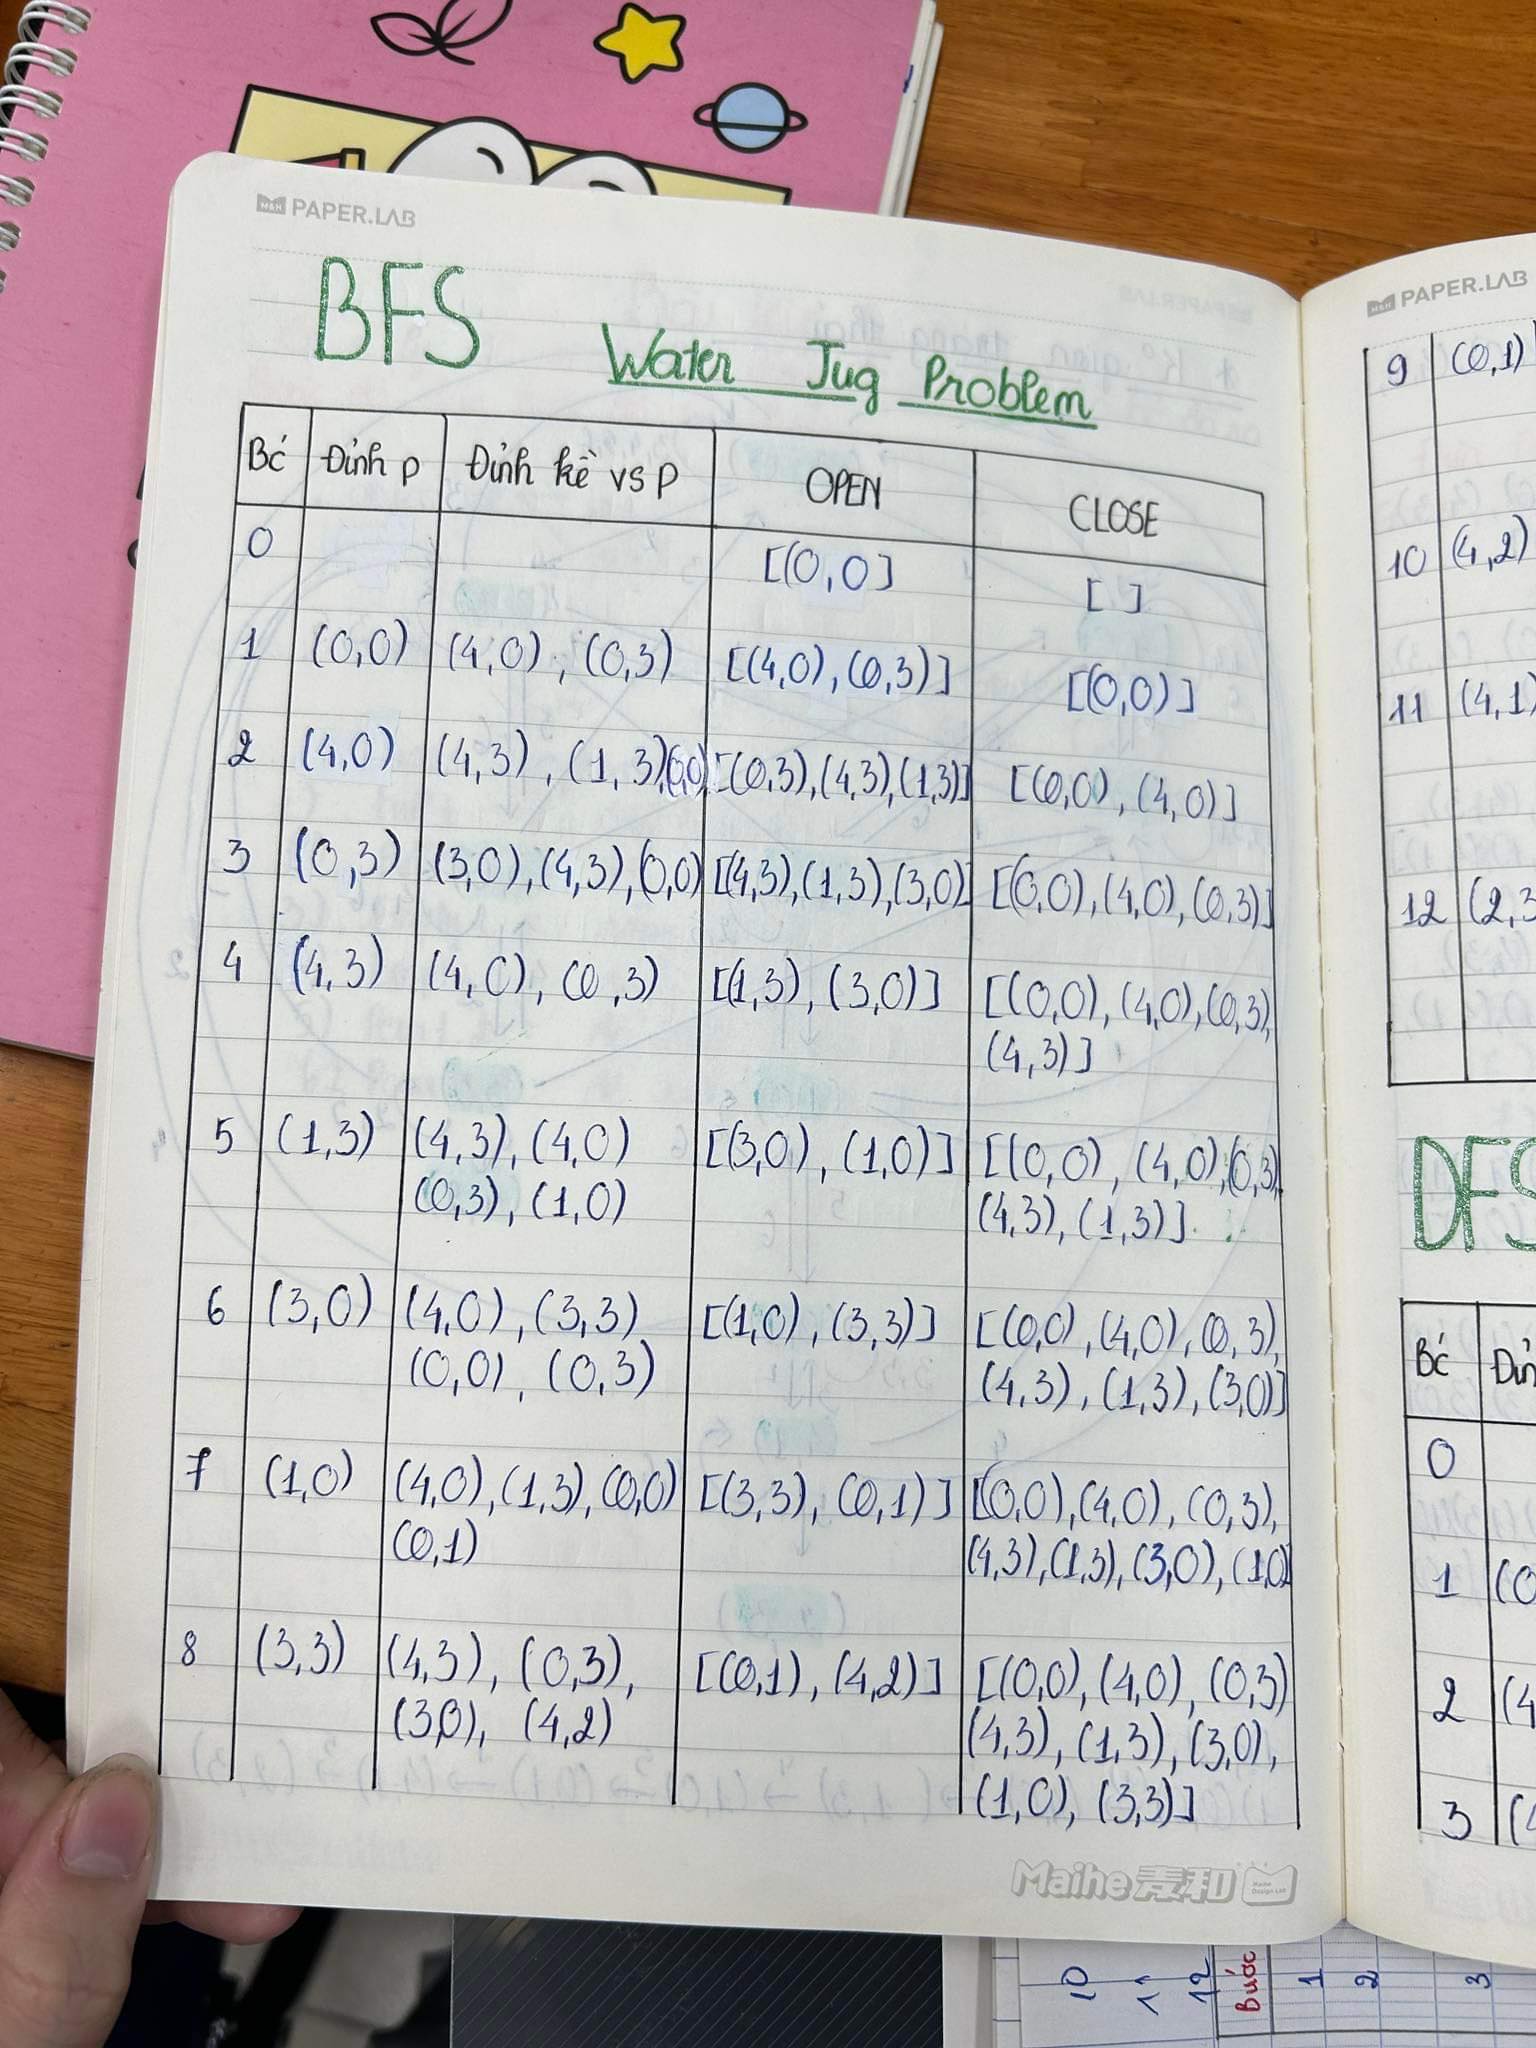 PAPER.LAB
PAPER.LAB
BFS
Water Jug Problem
Bć Đỉnh p Đỉnh kề vs p OPEN CLOSE
0 [(0,0] [ ]
1 (0,0) (4,0), (0,3) [(4,0), (0,3)] [(0,0)]
2 (4,0) (4,3), (1,3),(0,0) [(0,3),(4,3)(1,3)] [(0,0), (4,0)]
3 (0,3) (3,0),(4,3),(0,0) [(4,3),(1,3),(3,0)] [(0,0),(4,0),(0,3)]
4 (4,3) (4,0), (0,3) [(1,3), (3,0)] [(0,0), (4,0),(0,3),
(4,3)]
5 (1,3) (4,3), (4,0) [(3,0), (1,0)] [(0,0), (4,0),(0,3),
(0,3), (1,0) (4,3), (1,3)]
6 (3,0) (4,0), (3,3) [(1,0), (3,3)] [(0,0), (4,0), (0,3),
(0,0), (0,3) (4,3), (1,3), (3,0)]
7 (1,0) (4,0),(1,3),(0,0) [(3,3), (0,1)] [(0,0),(4,0), (0,3),
(0,1) (4,3),(1,3),(3,0),(1,0)]
8 (3,3) (4,3), (0,3), [(0,1), (4,2)] [(0,0), (4,0), (0,3)
(3,0), (4,2) (4,3), (1,3), (3,0),
(1,0), (3,3)]
Maihe 麦和
9 (0,1)
10 (4,2)
11 (4,1)
12 (2,3
DFS
Bć Đỉn
0
1 (0
2 (4
3 (4
10
11
12
Bước
1
2
3